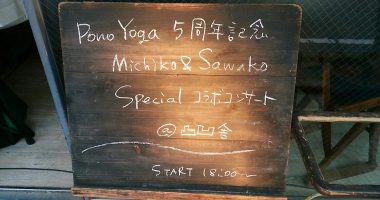 Pono Yoga 5周年記念
Michiko & Sawako
Special コラボコンサート
@ 凸凹舎
START 18:00〜